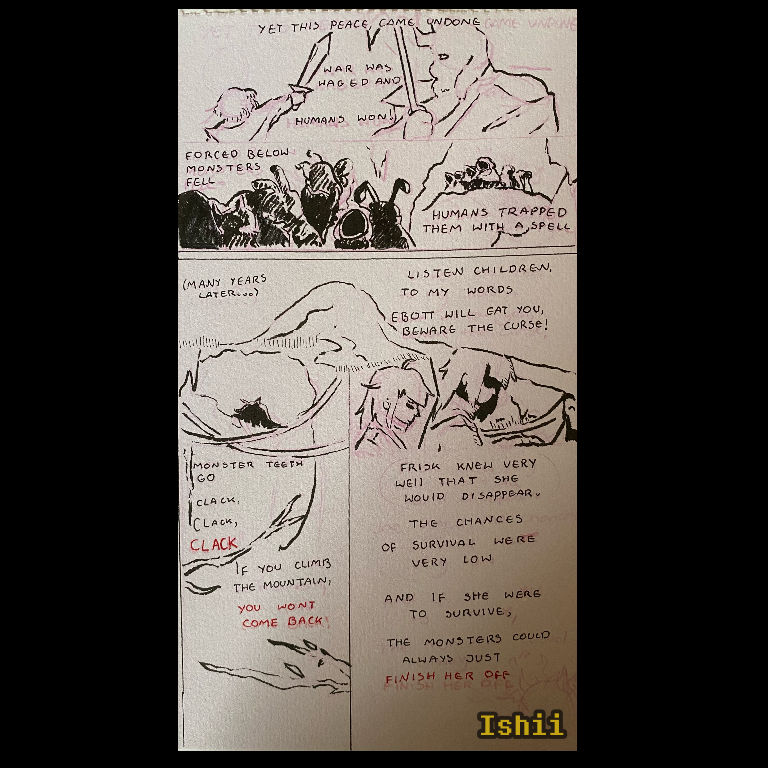 YET THIS PEACE CAME UNDONE
WAR WAS
WAGED AND
HUMANS WON!
FORCED BELOW
MONSTERS
FELL
HUMANS TRAPPED
THEM WITH A SPELL
(MANY YEARS
LATER...)
LISTEN CHILDREN,
TO MY WORDS
EBOTT WILL EAT YOU,
BEWARE THE CURSE!
MONSTER TEETH
GO
CLACK,
CLACK,
CLACK
IF YOU CLIMB
THE MOUNTAIN,
YOU WONT
COME BACK!
FRISK KNEW VERY
WEll THAT SHE
WOULD DISAPPEAR.
THE CHANCES
OF SURVIVAL WERE
VERY LOW
AND IF SHE WERE
TO SURVIVE,
THE MONSTERS COULD
ALWAYS JUST
FINISH HER OFF
Ishii